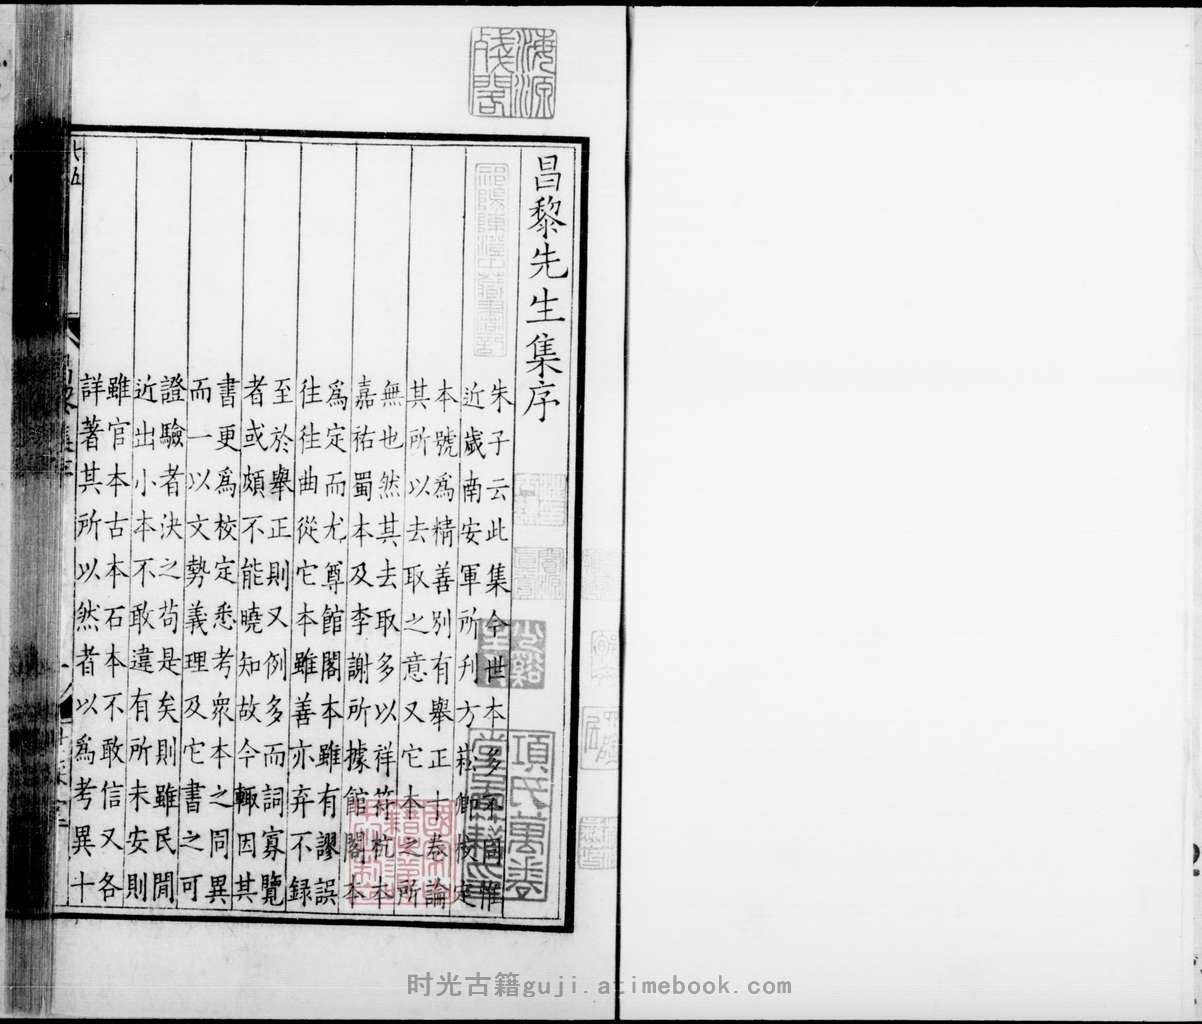 昌黎先生集序
朱子云此集今世本多不同惟
近歲南安軍所刋方崧卿校定
本號為精善別有舉正十卷論
其所以去取之意又它本之所
無也然其去取多以祥符杭本
嘉祐蜀本及李謝所據館閣本
為定而尤尊館閣本雖有謬誤
往往曲從它本雖善亦弃不錄
至於舉正則又例多而詞寡覽
者或頗不能曉知故今輒因其
書更為校定悉考衆本之同異
而一以文勢義理及它書之可
證驗者決之苟是矣則雖民間
近出小本不敢違有所未安則
雖官本古本石本不敢信又各
詳著其所以然者以為考異十
海源殘閣
祁陽陳澄中藏書記
項氏萬卷
时光古籍guji.atimebook.com